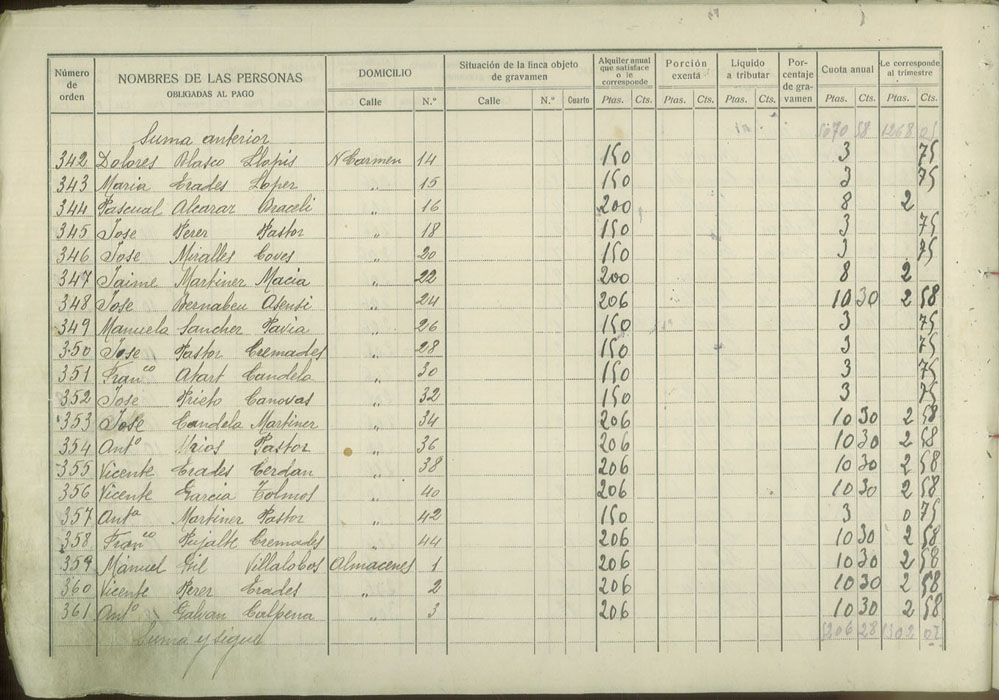 Número de orden
NOMBRES DE LAS PERSONAS
OBLIGADAS AL PAGO
DOMICILIO
Calle N.º
Situación de la finca objeto de gravamen
Calle N.º Cuarto
Alquiler anual que satisface o le corresponde
Ptas. Cts.
Porción exenta
Ptas. Cts.
Líquido a tributar
Ptas. Cts.
Porcentaje de gravamen
Cuota anual
Ptas. Cts.
Le corresponde al trimestre
Ptas. Cts.
Suma anterior 58 1268 05
342 Dolores Blasco Llopis N Carmen 14 150 3 75
343 Maria Erades Lopez " 15 150 3 75
344 Pascual Alcaraz Araceli " 16 200 8 2
345 Jose Perez Pastor " 18 150 3 75
346 Jose Miralles Coves " 20 150 3 75
347 Jaime Martinez Macia " 22 200 8 2
348 Jose Bernabeu Asensi " 24 206 10 30 2 58
349 Manuela Sanchez Pavia " 26 150 3 75
350 Jose Pastor Cremades " 28 150 3 75
351 Franco Candela " 30 150 3 75
352 Jose Prieto Canovas " 32 150 3 75
353 Jose Candela Martinez " 34 206 10 30 2 58
354 Anto Urios Pastor " 36 206 10 30 2 58
355 Vicente Erades Cerdan " 38 206 10 30 2 58
356 Vicente Garcia Tolmos " 40 206 10 30 2 58
357 Anta Martinez Pastor " 42 150 3 0 75
358 Franco Pujalte Cremades " 44 206 10 30 2 58
359 Manuel Gil Villalobos Almacenes 1 206 10 30 2 58
360 Vicente Perez Erades " 2 206 10 30 2 58
361 Anto Galvan Calpena " 3 206 10 30 2 58
Suma y sigue 5206 28 1302 07